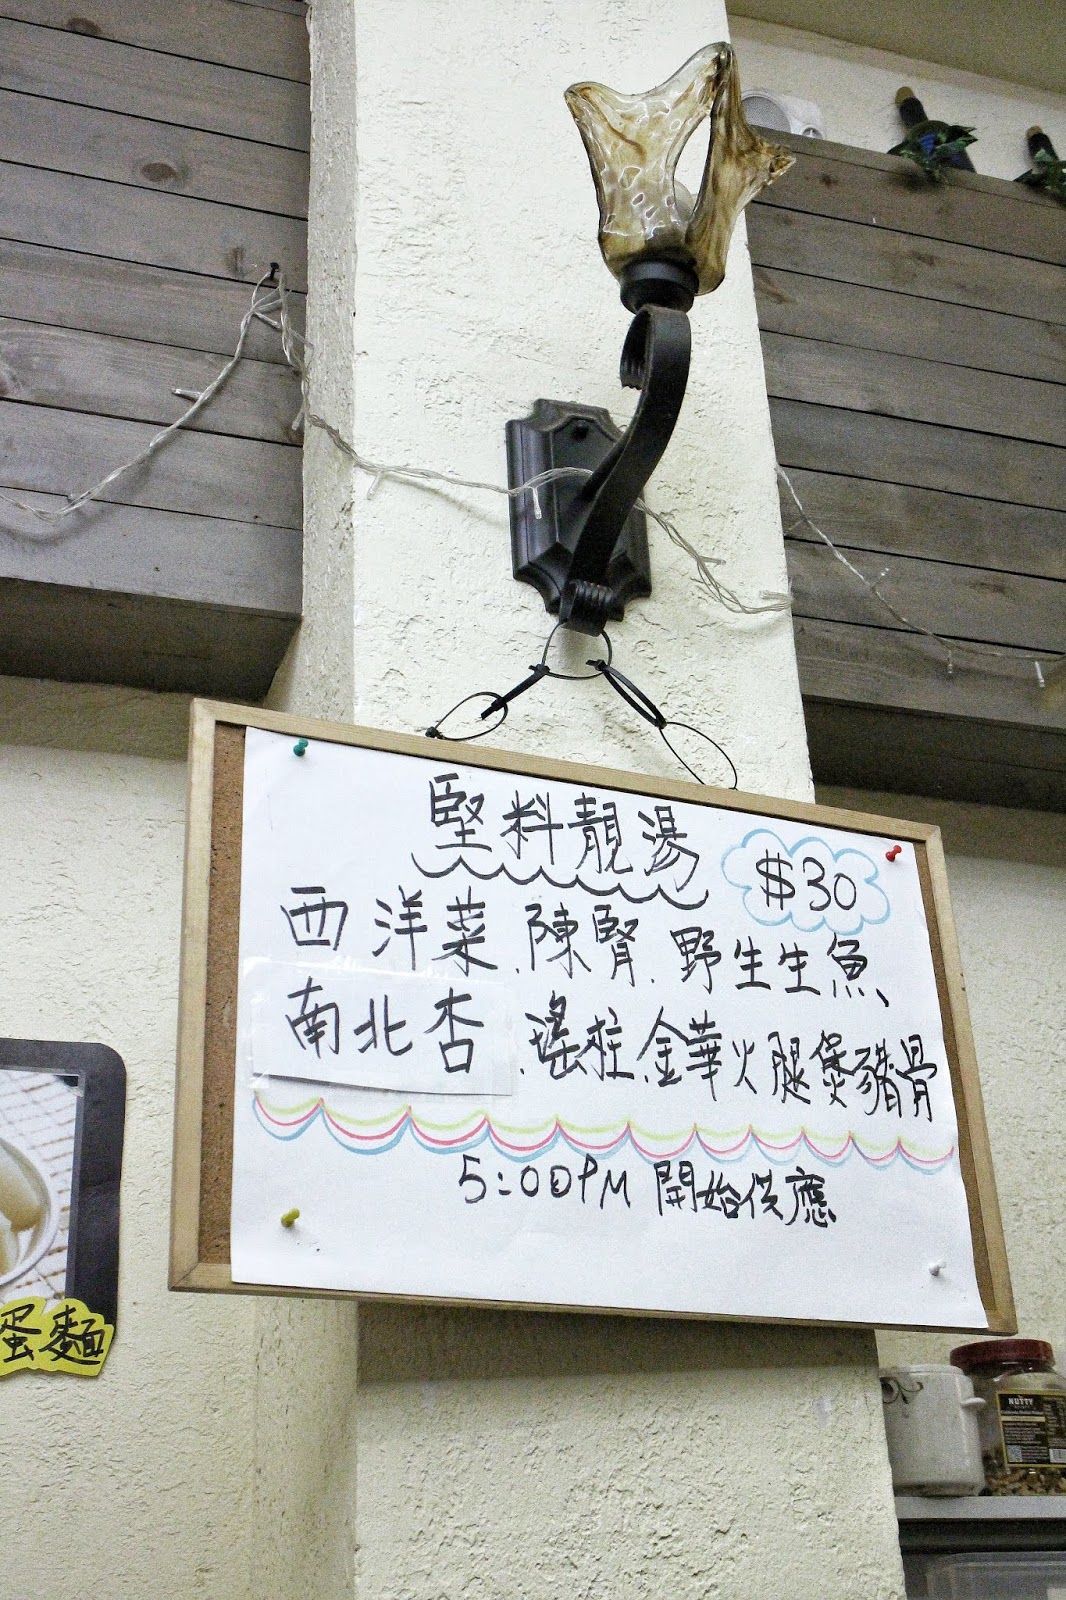 堅料靚湯
$30
西洋菜、陳腎、野生生魚、
南北杏、瑤柱、金華火腿煲豬骨
5:00PM 開始供應
蛋麵
NUTTY